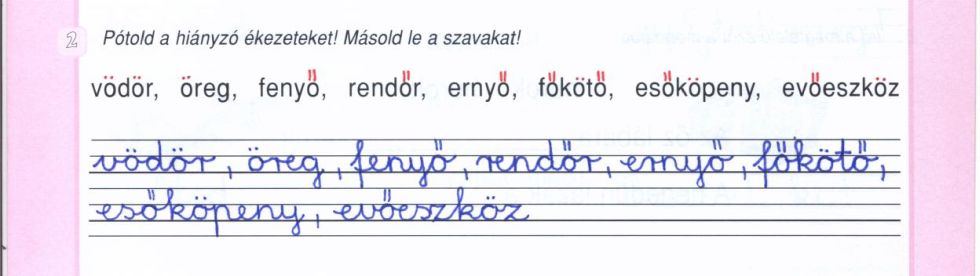 2 Pótold a hiányzó ékezeteket! Másold le a szavakat!
vödör, öreg, fenyő, rendőr, ernyő, főkötő, esőköpeny, evőeszköz
vödör, öreg, fenyő, rendőr, ernyő, főkötő,
esőköpeny, evőeszköz